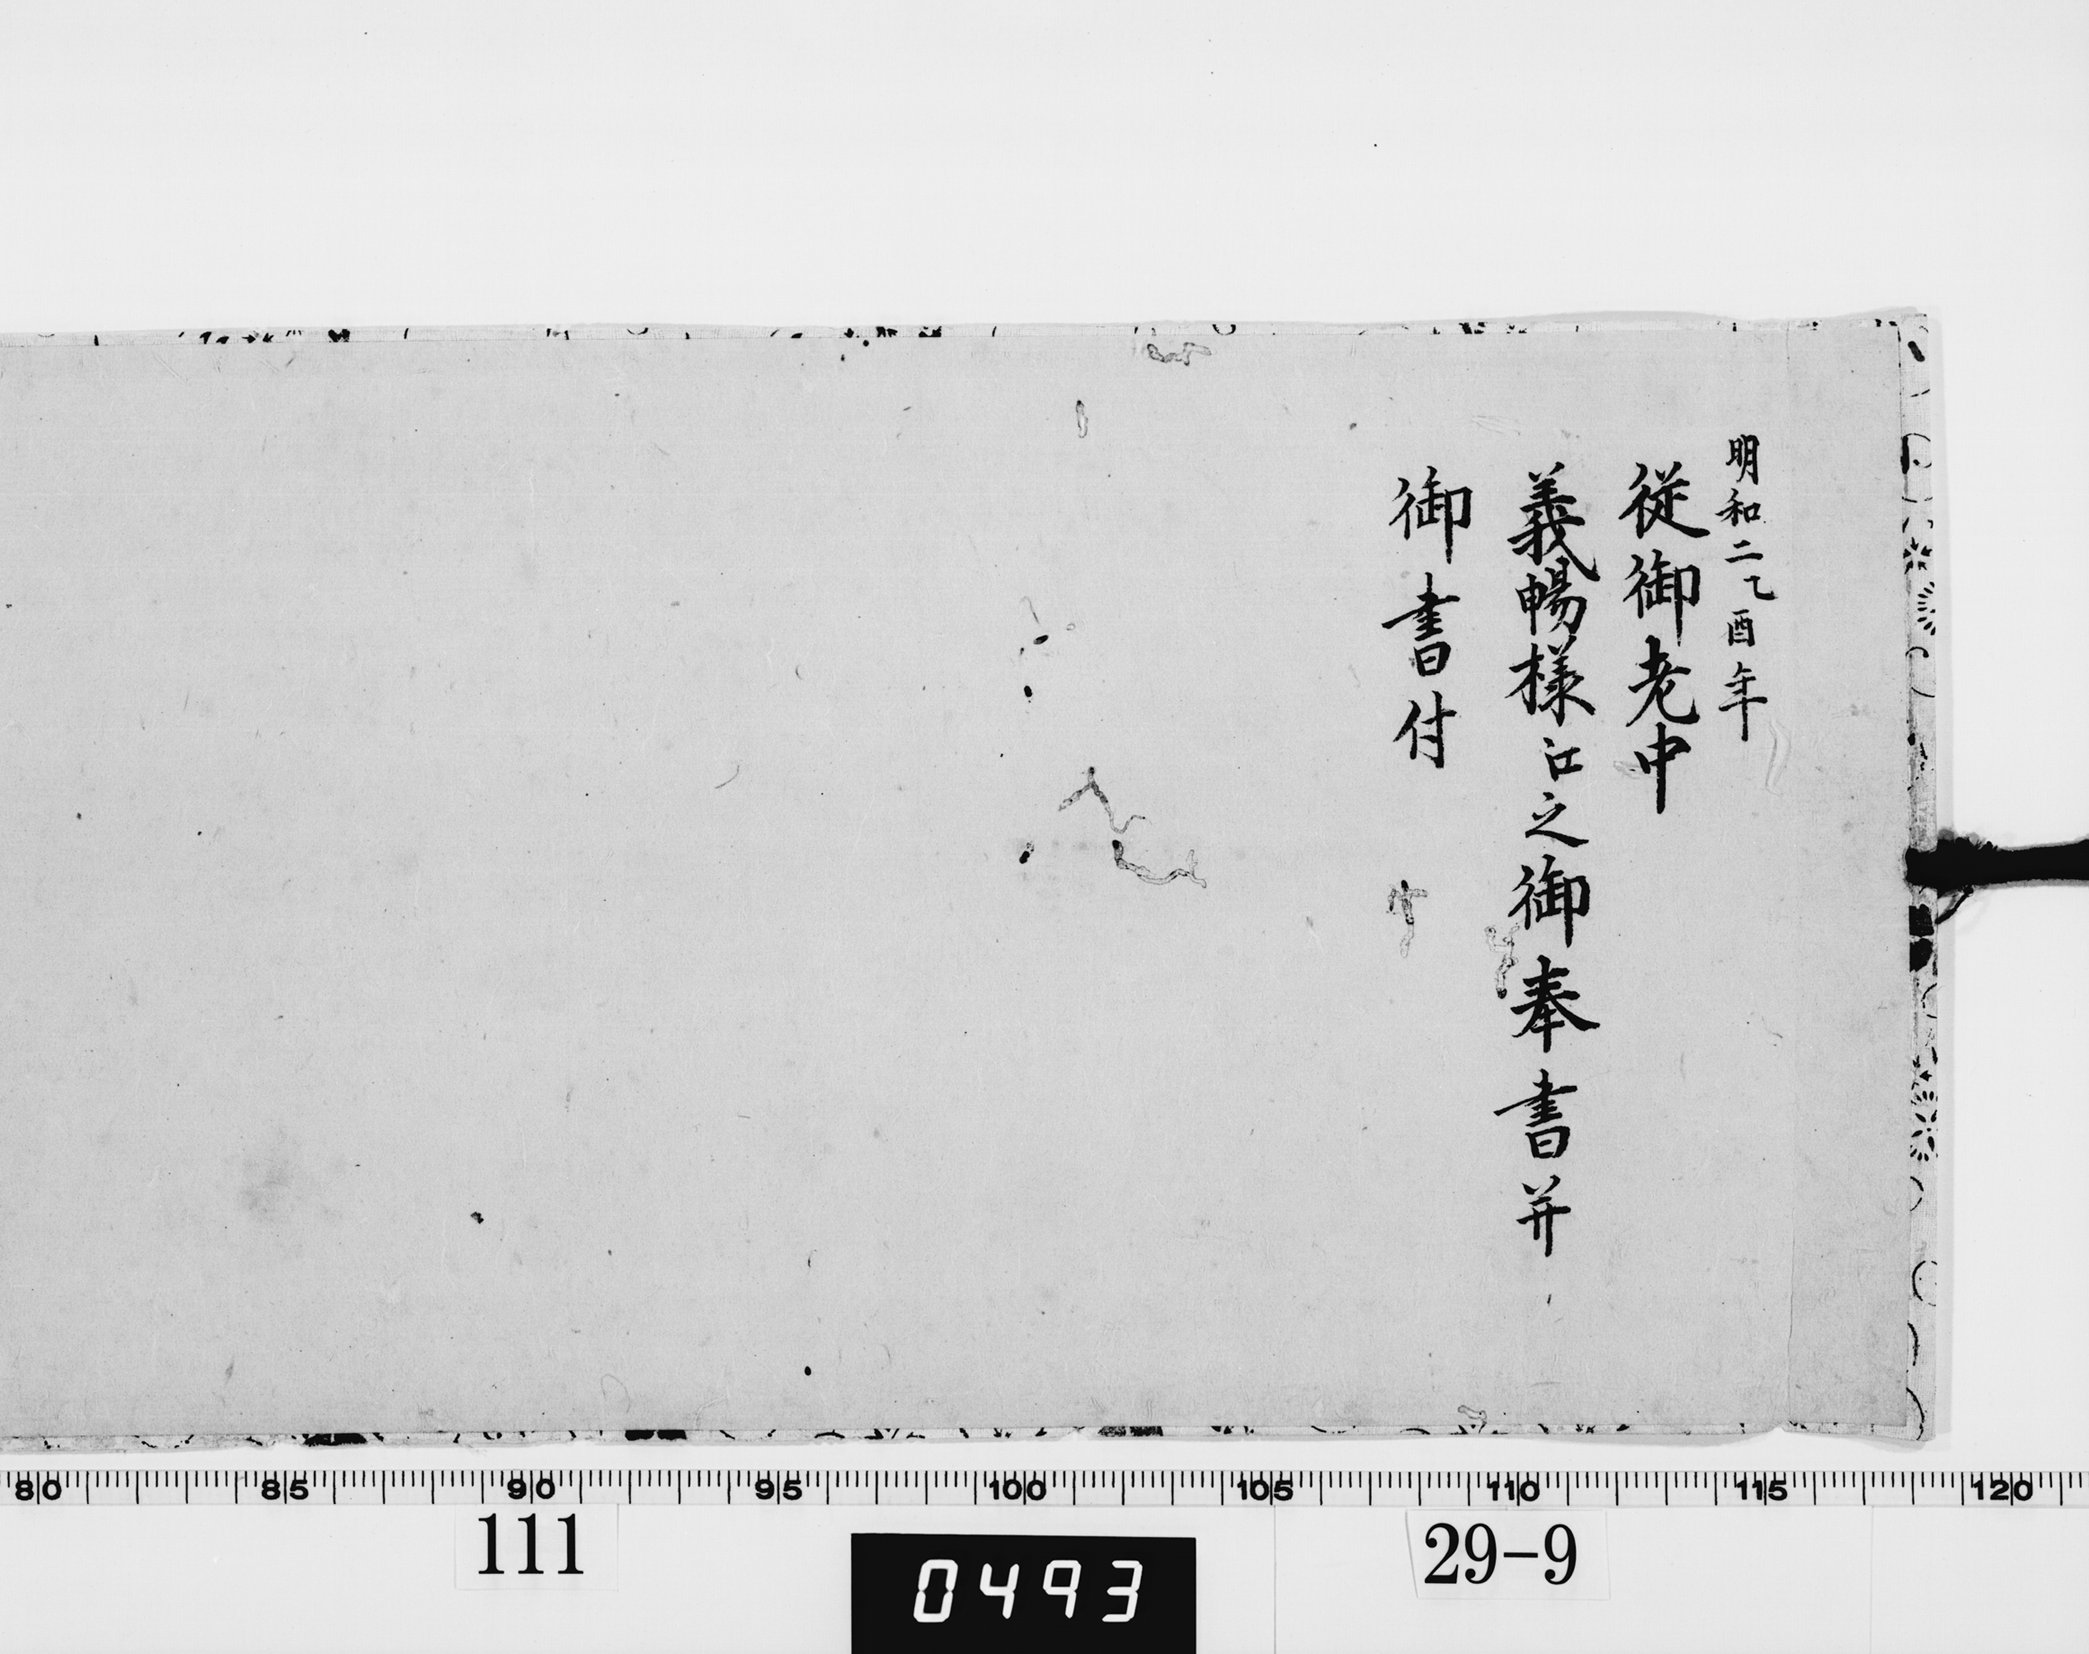 明和二乙酉年
従御老中
義暢様江之御奉書并
御書付
80 85 90 95 100 105 110 115 120
111
0493
29-9